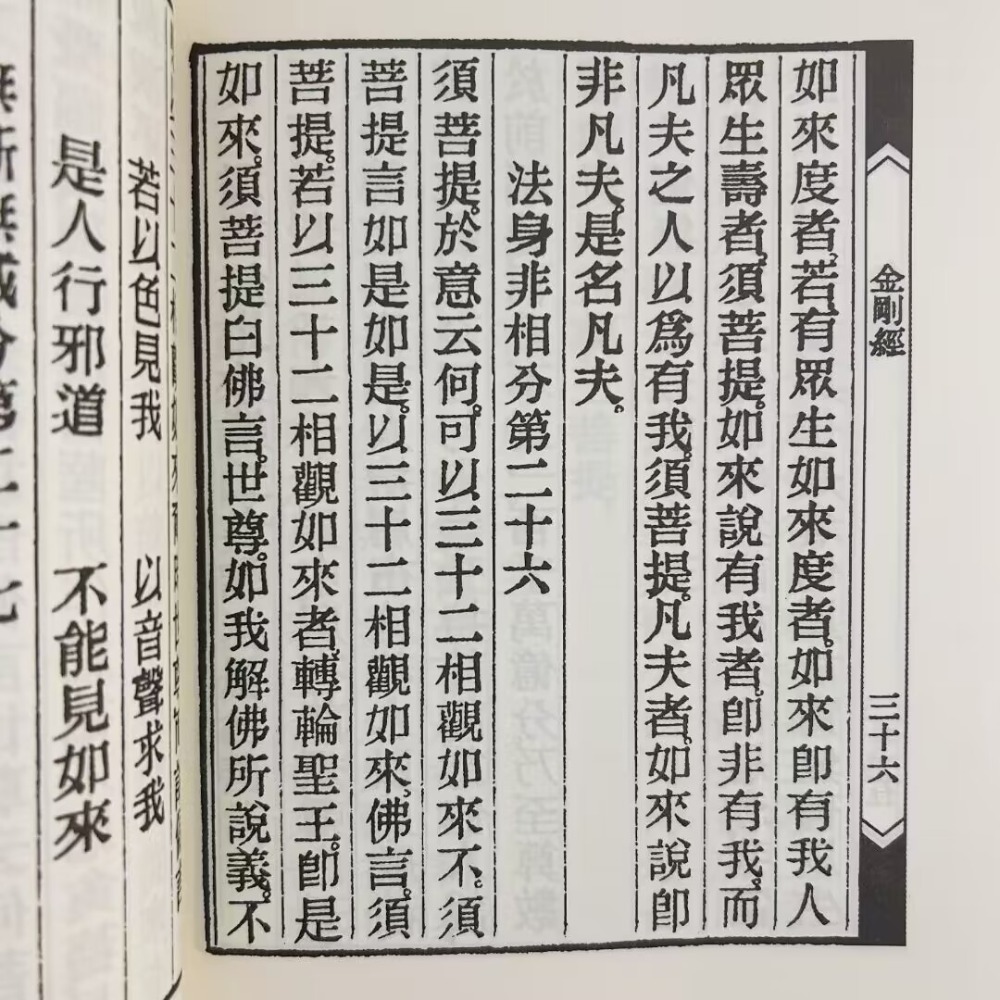 金剛經
三十六
如來度者。若有眾生如來度者。如來卽有我人
眾生壽者。須菩提。如來說有我者。卽非有我。而
凡夫之人以爲有我。須菩提。凡夫者。如來說卽
非凡夫。是名凡夫。
法身非相分第二十六
須菩提。於意云何。可以三十二相觀如來不。須
菩提言如是如是。以三十二相觀如來。佛言。須
菩提。若以三十二相觀如來者。轉輪聖王。卽是
如來。須菩提白佛言。世尊。如我解佛所說義。不
若以色見我 以音聲求我
是人行邪道 不能見如來